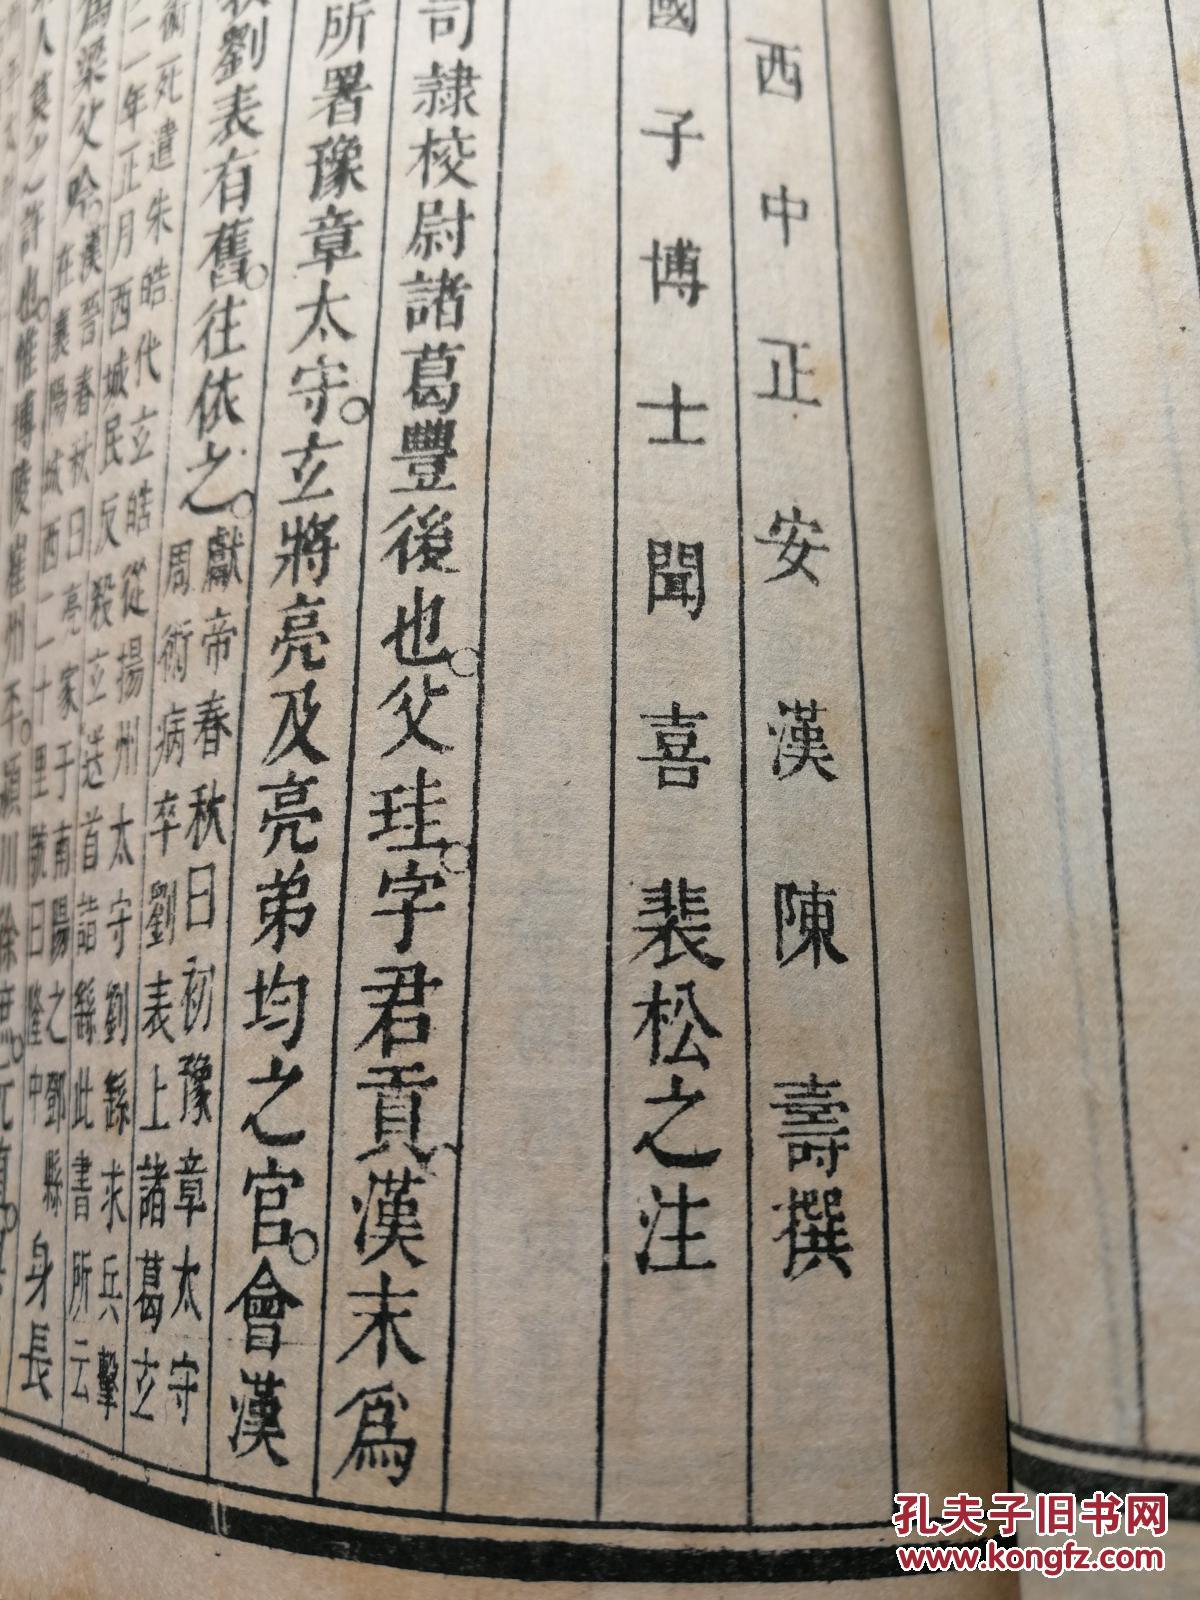 西中正安漢陳壽撰
國子博士聞喜裴松之注
司隸校尉諸葛豐後也。父珪。字君貢。漢末爲
所署豫章太守。玄將亮及亮弟均之官。會漢
劉表有舊。往依之。
獻帝春秋曰初豫章太守
周術病卒劉表上諸葛玄
術死遣朱皓代玄皓從揚州太守劉繇求兵擊
二年正月西城民反殺玄送首詣繇此書所云
爲梁父吟。
漢晉春秋曰亮家于南陽之鄧縣
在襄陽城西二十里號曰隆中
身長
人莫之許也。惟博陵崔州平。潁川徐庶。元直。
孔夫子旧书网
www.kongfz.com